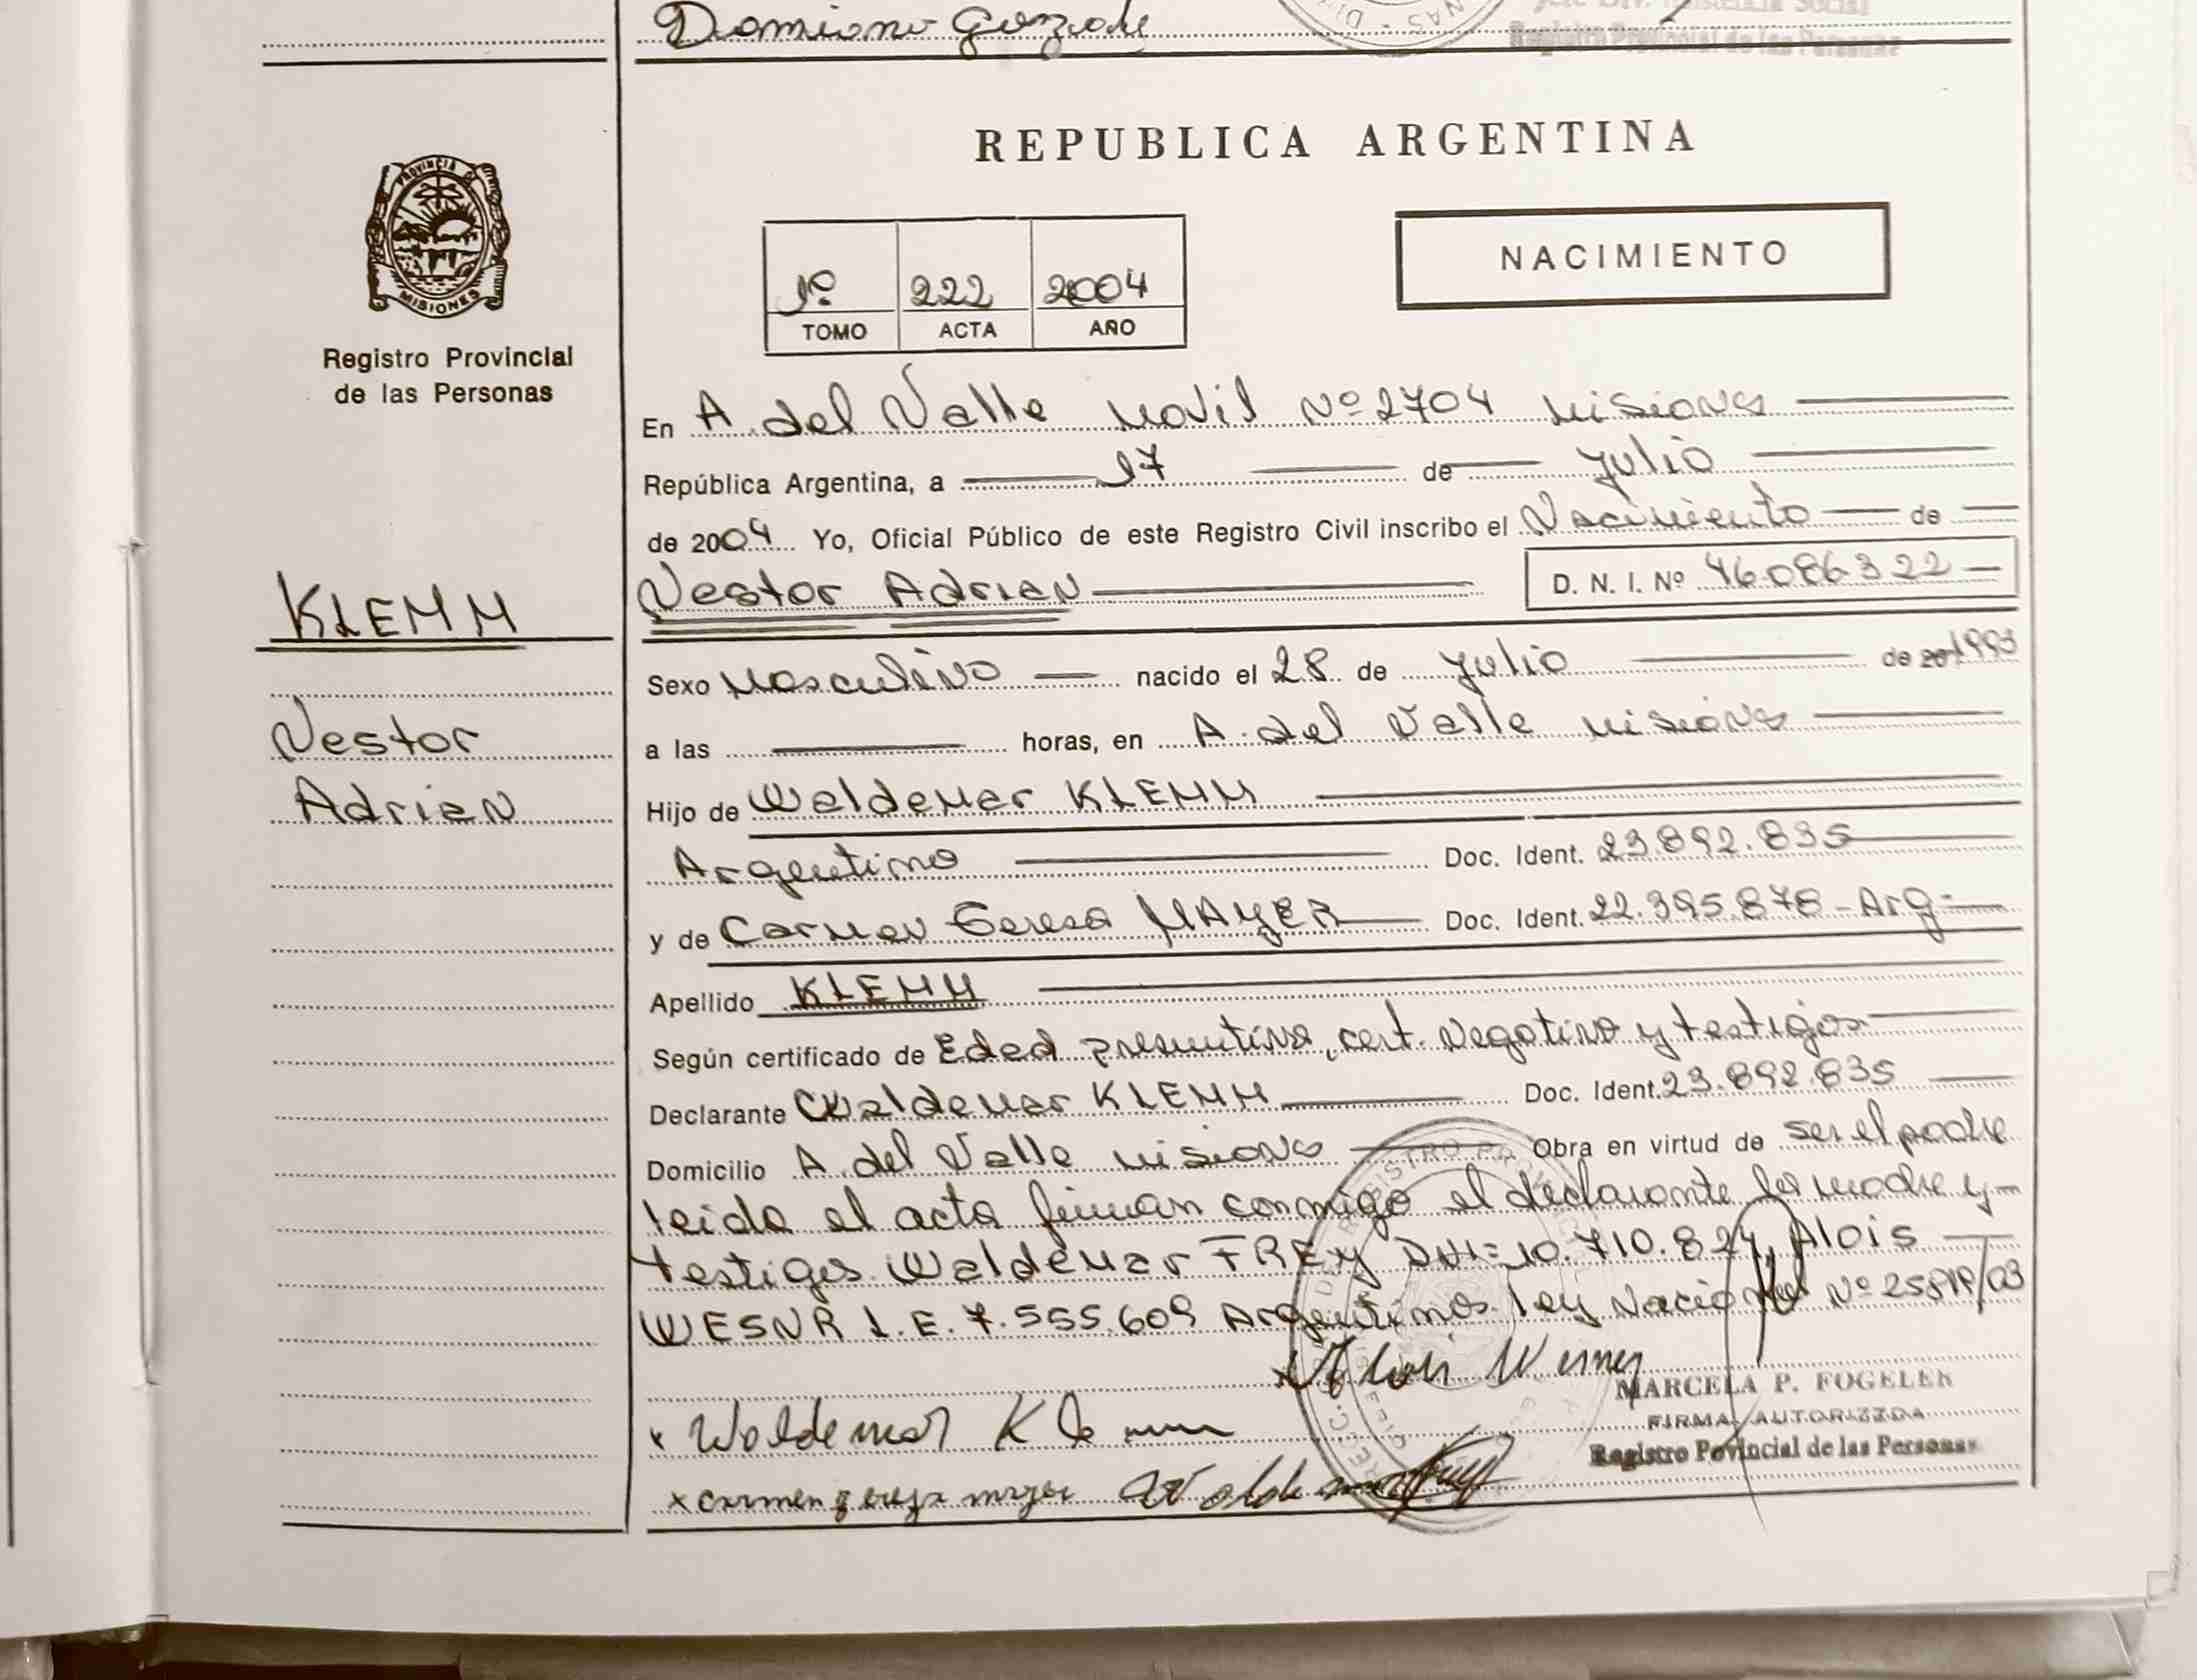 Damiano Gonzale
Registro Provincial de las Personas
REPUBLICA ARGENTINA
PROVINCIA DE
MISIONES
Registro Provincial
de las Personas
1º 222 2004
TOMO ACTA AÑO
NACIMIENTO
En A. del Valle Movil Nº 2704 Misiones
República Argentina, a 17 de Julio
de 2004 Yo, Oficial Público de este Registro Civil inscribo el Nacimiento de
KLEMM
Nestor Adrian D. N. I. Nº 46086322
Sexo Masculino nacido el 28 de Julio de 20 1993
Nestor
a las horas, en A. del Valle Misiones
Adrian
Hijo de Waldemar KLEMM
Argentino Doc. Ident. 23.892.835
y de Carmen Teresa MAYER Doc. Ident. 22.395.878 - Arg-
Apellido KLEMM
Según certificado de Edad presuntiva, cert. Negativo y testigos
Declarante Waldemar KLEMM Doc. Ident. 23.892.835
Domicilio A. del Valle Misiones Obra en virtud de ser el padre
leida el acta firman conmigo el declarante la madre y
testigos Waldemar FREY DNI= 10.710.824, Alois
WESNR L.E. 7.555.609 Argentinos. Ley Nacional Nº 25819/03
Alois Werner
MARCELA P. FOGELER
FIRMA AUTORIZZDA
x Waldemar Klemm
Registro Povincial de las Personas
x carmen tereza mayer Waldemar Frey